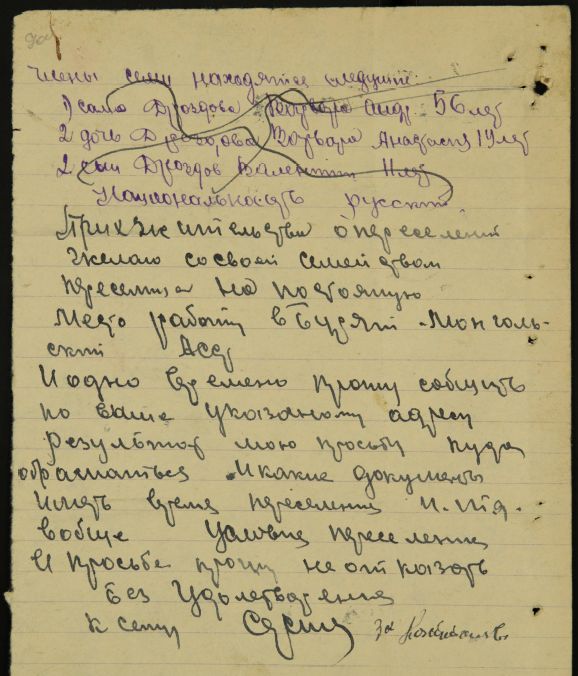 Члены семи находятся следущие
1) сама Дроздова Варвара Андр. 56 лет
2 дочь Варвара Анастасия 19 лет
2 сын Дроздов Валентин 11 лет
Национальность русские.
о переселений
желаю со своей семейством
переселится на постояную
место работы в Бурят-Монголь-
ский АССР
И одно времено прошу собщить
по выше указаному адресу
результат мою просьбу куда
обращаться и какие документы
иметь время переселения и.т.д.
вобще условия переселения
и просьбе прошу не отказать
без удолетворения
к сему